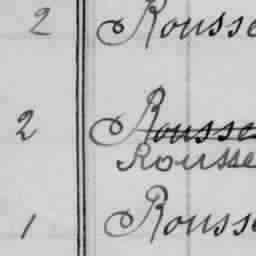 2 Rousse
2 Rousse
Rousse
1 Rouss